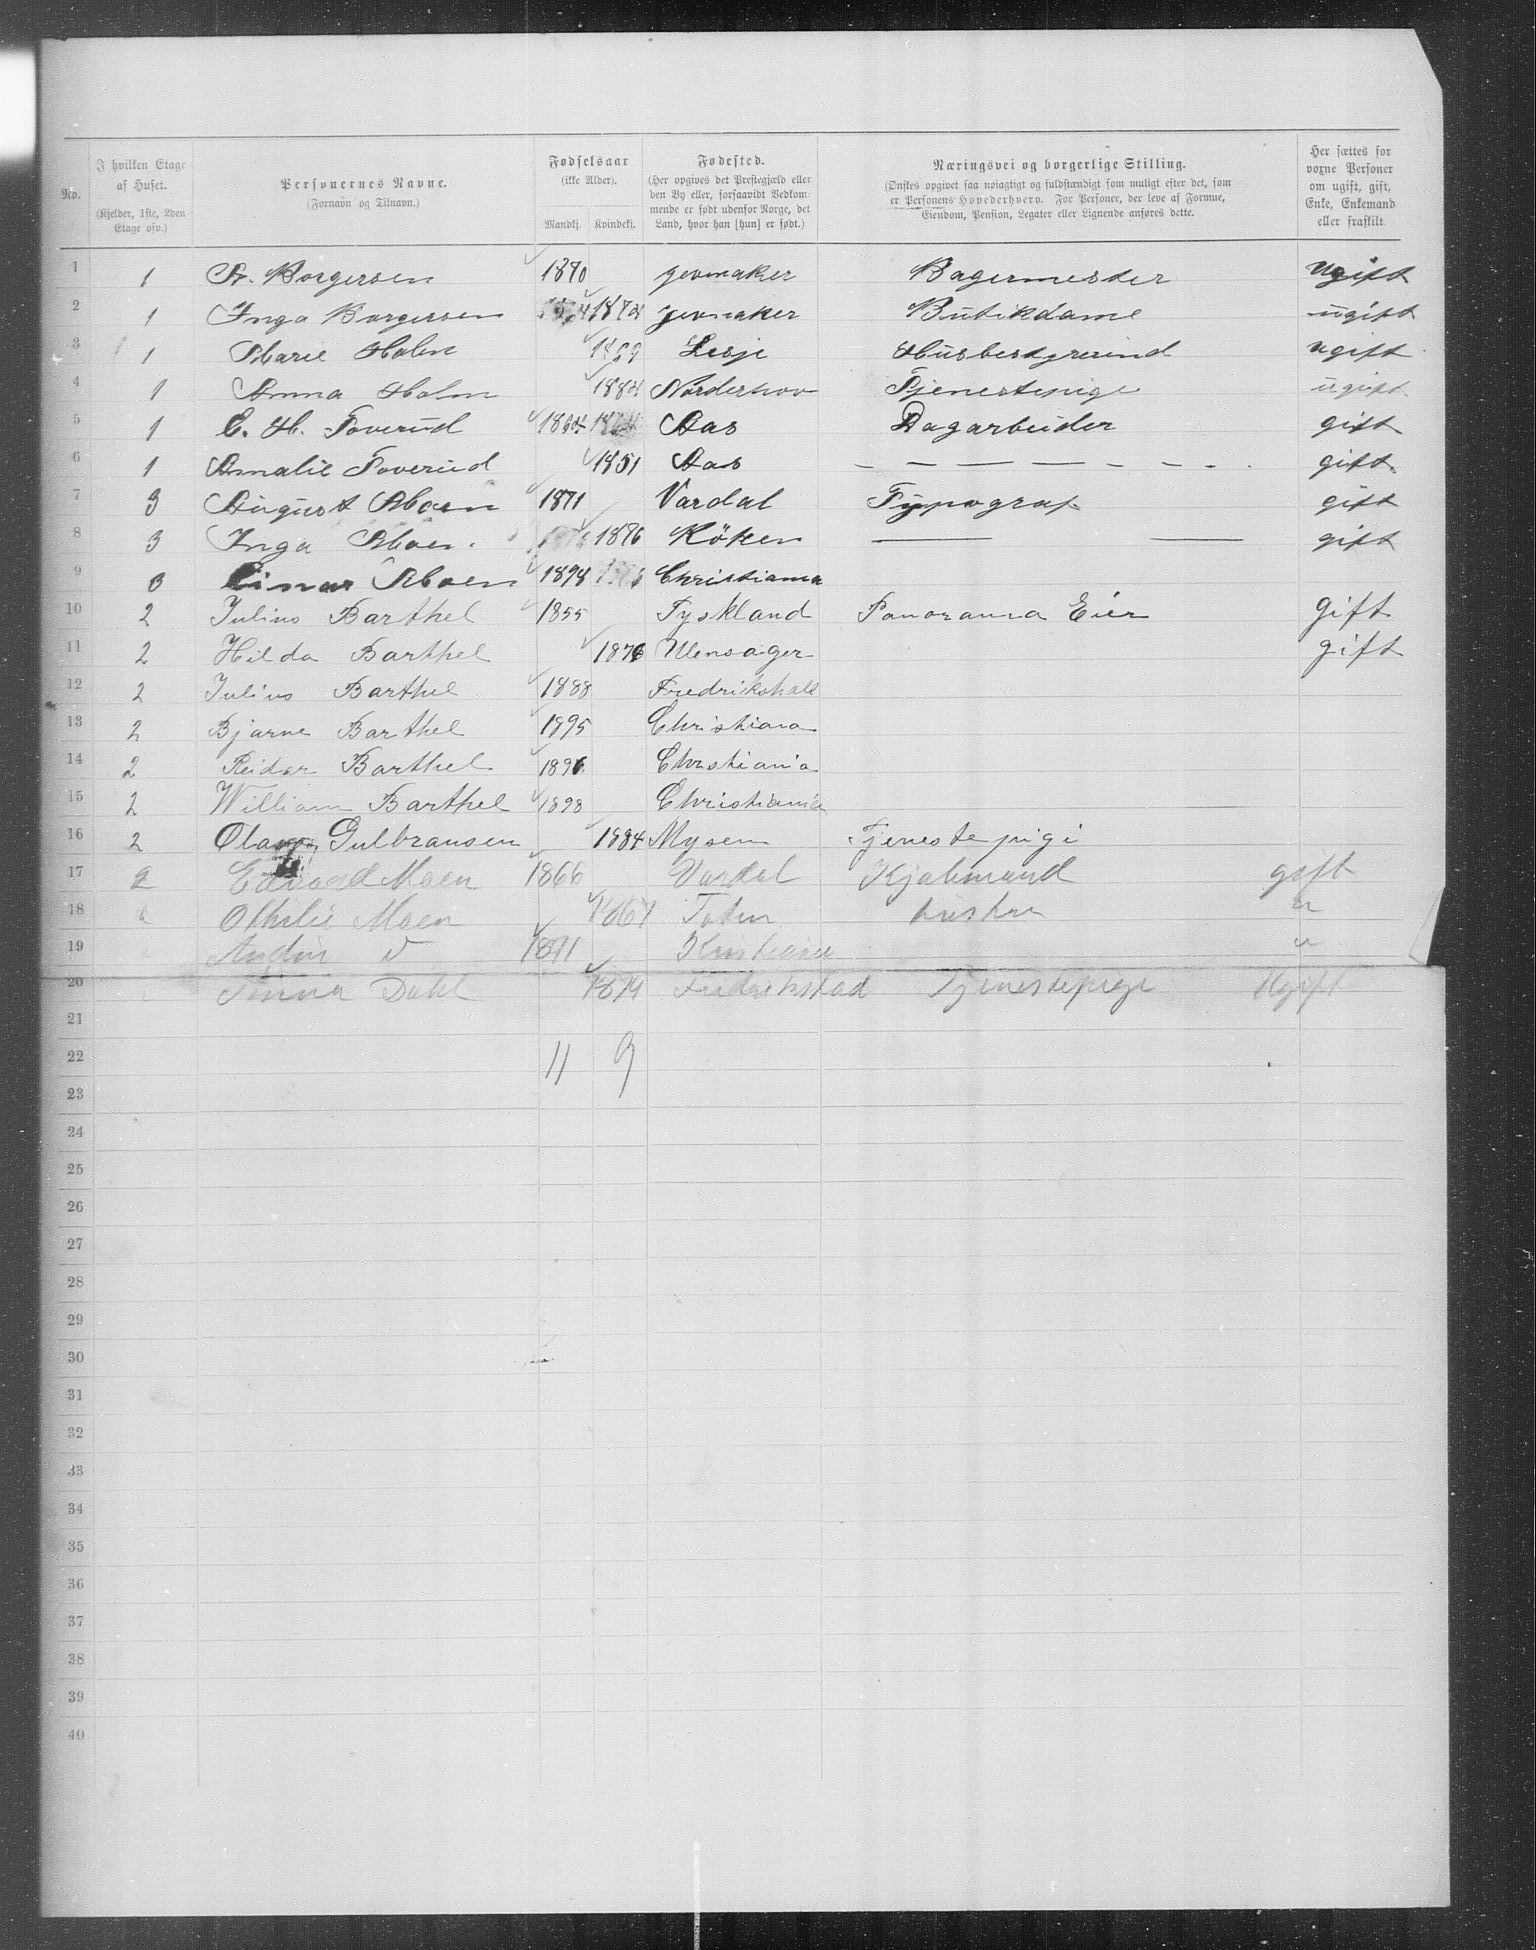 No.
I hvilken Etage af Huset. (Kjelder, 1ste, 2den Etage osv.)
Personernes Navne. (Fornavn og Tilnavn.)
Fødselsaar (ikke Alder). Mandkj. Kvindekj.
Fødested. (Her opgives det Prestegjæld eller den By eller, forsaavidt Vedkommende er født udenfor Norge, det Land, hvor han [hun] er født.)
Næringsvei og borgerlige Stilling. (Ønskes opgivet saa nøiagtigt og fuldstændigt som muligt efter det, som er Personens Hovederhverv. For Personer, der leve af Formue, Eiendom, Pension, Legater eller Lignende anføres dette.)
Her sættes for voxne Personer om ugift, gift, Enke, Enkemand eller fraskilt.
1 1 A. Borgersen 1870 jevnaker Bagermester ugift
2 1 Inga Borgersen 1874 jevnaker Butikdame ugift
3 1 Marie Holm 1869 Lesje Husbestyrerind ugift
4 1 Anna Holm 1884 Norderhov Tjenestepige ugift
5 1 C. H. Toverud 1864 Aas Dagarbeider gift
6 1 Amalie Toverud 1851 Aas — — — — — — — gift
7 3 August Moen 1871 Vardal Typograf gift
8 3 Inga Moen 1876 Röken — — gift
9 3 Einar Moen 1898 Christiania
10 2 Julius Barthel 1855 Tyskland Panorama Eier gift
11 2 Hilda Barthel 1876 Ullensager gift
12 2 Julius Barthel 1888 Fredrikshall
13 2 Bjarne Barthel 1895 Christiana
14 2 Reidar Barthel 1896 Christiania
15 2 William Barthel 1898 Christiania
16 2 Gulbransen 1884 Mysen Tjenestepige
17 2 Edvard Moen 1866 Vardal Kjøbmand gift
18 2 Othelie Moen 1867 Toten hustru "
19 1891 Kristiania "
20 Dahl 1874 Fredrikstad Tjenestepige Ugift
21
22 11 9
23
24
25
26
27
28
29
30
31
32
33
34
35
36
37
38
39
40